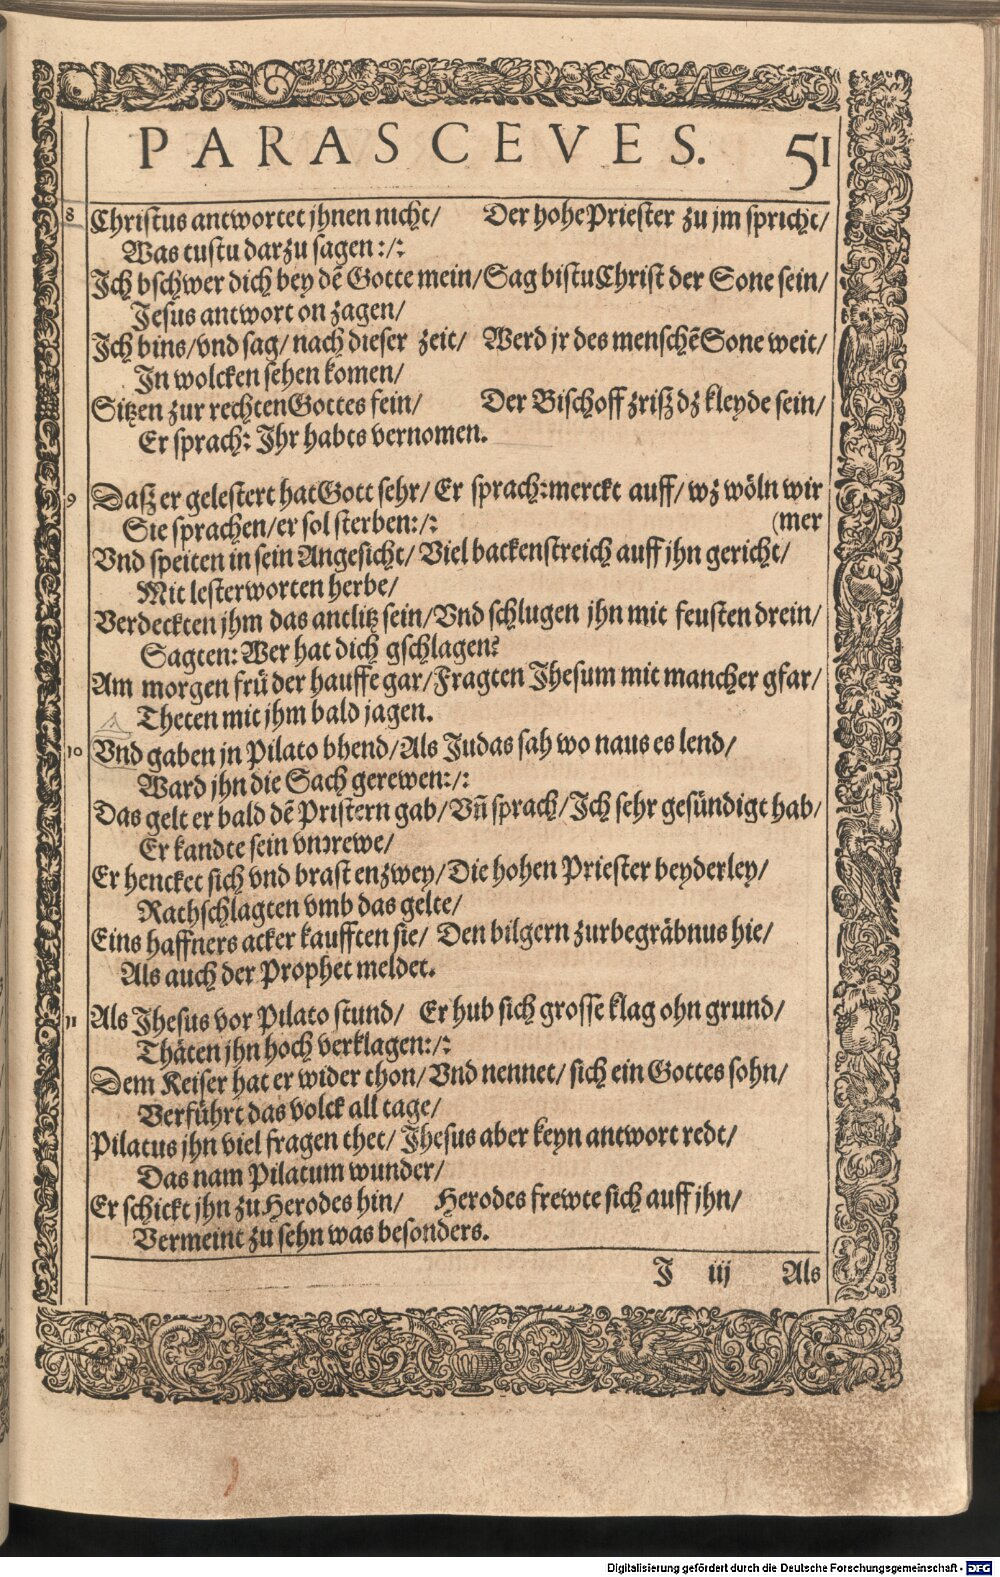 PARASCEVES. 51
8 Christus antwortet jhnen nicht/ Der hohe Priester zu jm spricht/
Was tustu darzu sagen :/:
Ich bschwer dich bey dē Gotte mein/ Sag bistu Christ der Sone sein/
Jesus antwort on zagen/
Ich bins/ vnd sag/ nach dieser zeit/ Werd jr des menschē Sone weit/
In wolcken sehen komen/
Sitzen zur rechten Gottes fein/ Der Bischoff zriß dz kleyde sein/
Er sprach: Ihr habts vernomen.
9 Daß er gelestert hat Gott sehr/ Er sprach: merckt auff/ wz wöln wir
Sie sprachen/ er sol sterben:/: (mer
Vnd speiten in sein Angesicht/ Viel backenstreich auff jhn gericht/
Mit lesterworten herbe/
Verdeckten jhm das antlitz sein/ Vnd schlugen jhn mit feusten drein/
Sagten: Wer hat dich gschlagen?
Am morgen frü der hauffe gar/ Fragten Jhesum mit mancher gfar/
Theten mit jhm bald jagen.
10 Vnd gaben jn Pilato bhend/ Als Judas sah wo naus es lend/
Ward jhn die Sach gerewen:/:
Das gelt er bald dē Pristern gab/ Vñ sprach/ Ich sehr gesündigt hab/
Er kandte sein vntrewe/
Er hencket sich vnd brast enzwey/ Die hohen Priester beyderley/
Rathschlagten vmb das gelte/
Eins haffners acker kaufften sie/ Den bilgern zur begräbnus hie/
Als auch der Prophet meldet.
11 Als Jhesus vor Pilato stund/ Er hub sich grosse klag ohn grund/
Thäten jhn hoch verklagen:/:
Dem Keiser hat er wider thon/ Vnd nennet/ sich ein Gottes sohn/
Verführt das volck all tage/
Pilatus jhn viel fragen thet/ Jhesus aber keyn antwort redt/
Das nam Pilatum wunder/
Er schickt jhn zu Herodes hin/ Herodes frewte sich auff jhn/
Vermeint zu sehn was besonders.
J iij Als
Digitalisierung gefördert durch die Deutsche Forschungsgemeinschaft - DFG